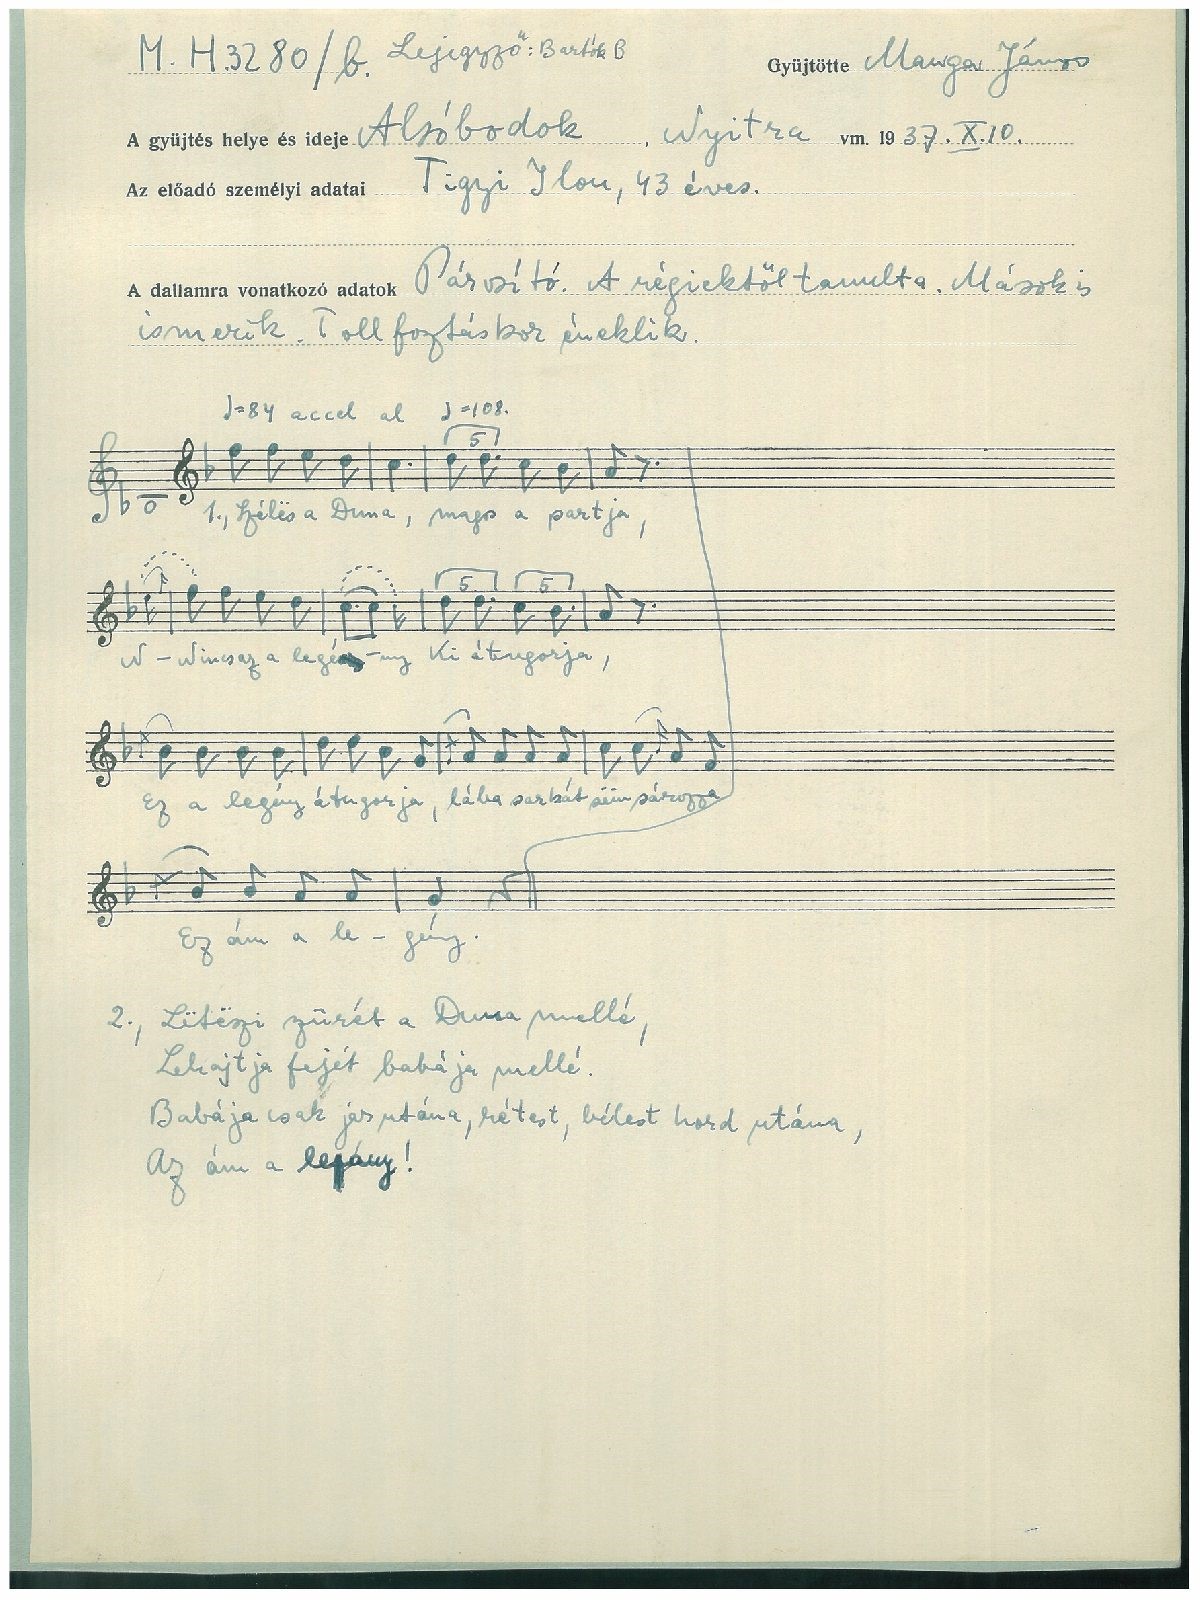 M. H. 3280/b. Lejegyző: Bartók B
Gyüjtötte Manga János
A gyüjtés helye és ideje Alsóbodok, Nyitra vm. 1937. X. 10.
Az előadó személyi adatai Tigyi Ilon, 43 éves.
A dallamra vonatkozó adatok Párosító. A régiektől tanulta. Mások is
ismerik. Tollfoztáskor éneklik.
♩=84 accel al ♩=108.
5
1., Szélës a Duna, magos a partja,
5 5
N - Nincsaz a legé-ny Ki átugorja,
Ez a legény átugorja, lába sarkát sëm sározza
Ez ám a le - gény.
2., Lëtëszi szűrét a Duna mellé,
Lehajtja fejét babája mellé.
Babája csak jár utána, rétest, bélest hord utána,
Az ám a legény!